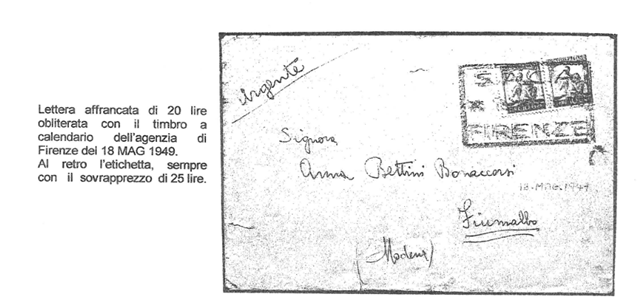 Lettera affrancata di 20 lire
obliterata con il timbro a
calendario dell'agenzia di
Firenze del 18 MAG 1949.
Al retro l'etichetta, sempre
con il sovrapprezzo di 25 lire.
urgente
S
FIRENZE
Signora
Anna Bettini Bonaccorsi
18 MAG. 1949
Fiumalbo
(Modena)